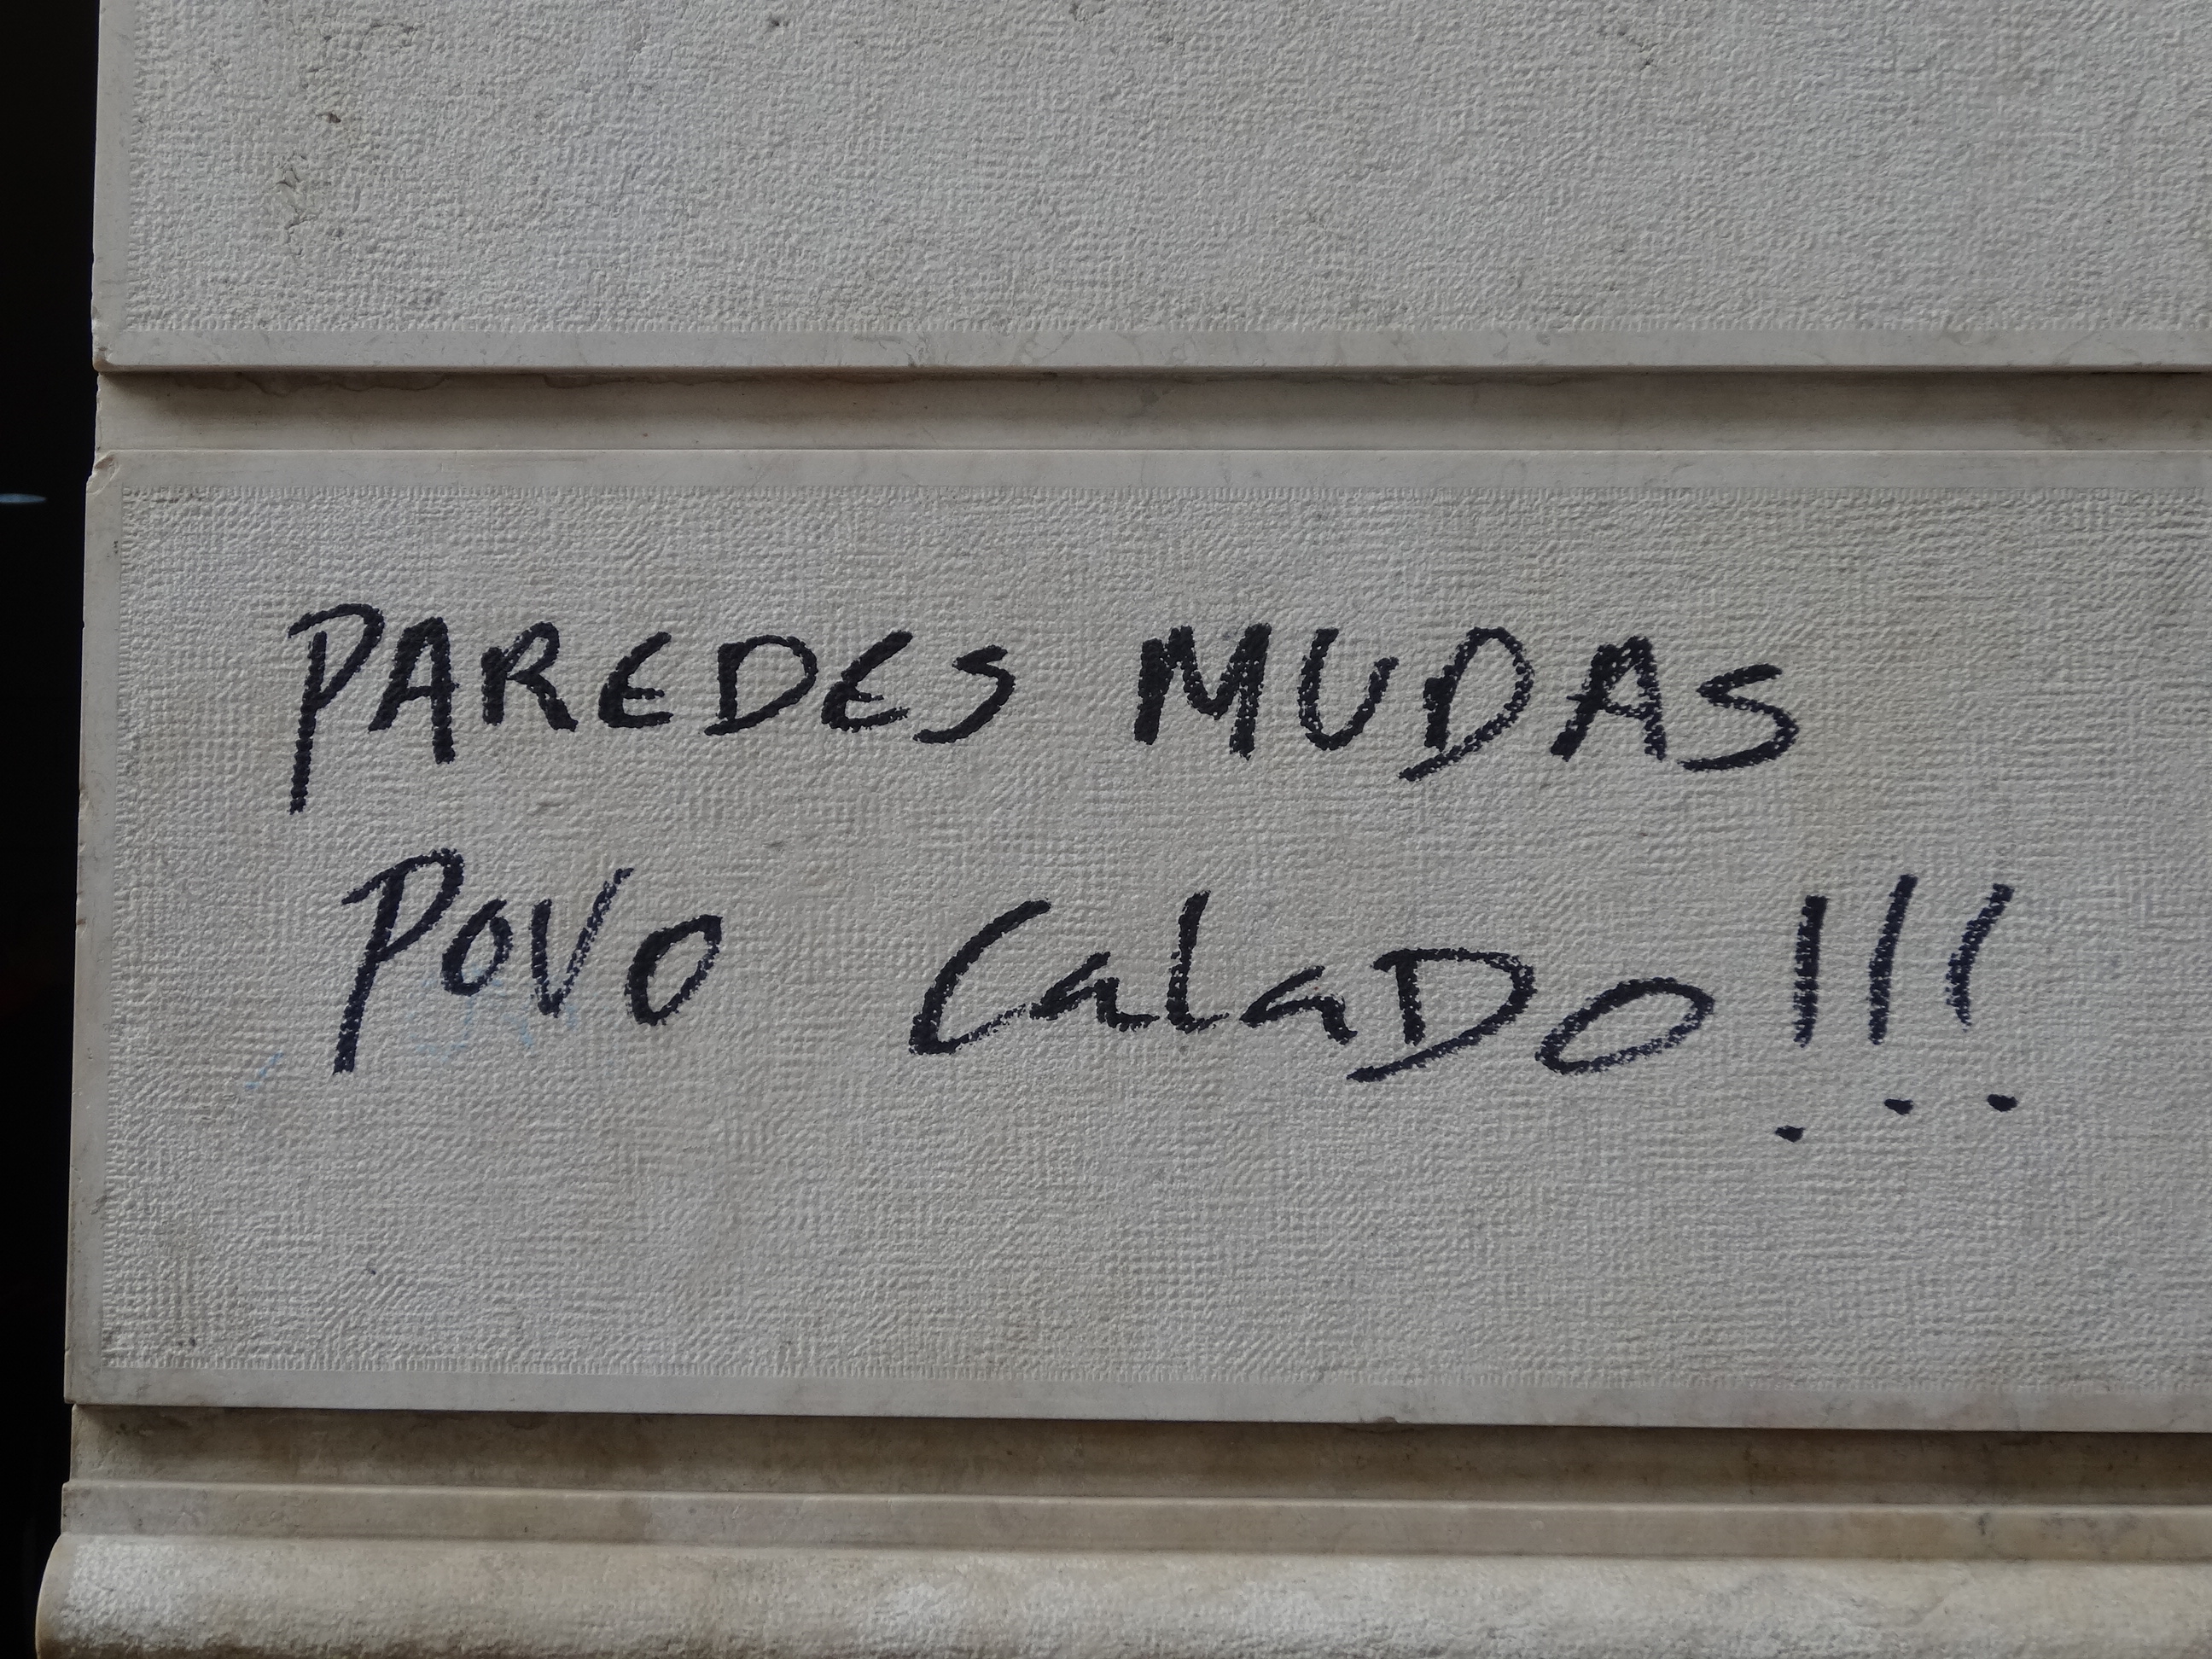 PAREDES MUDAS
POVO CalaDO!!!